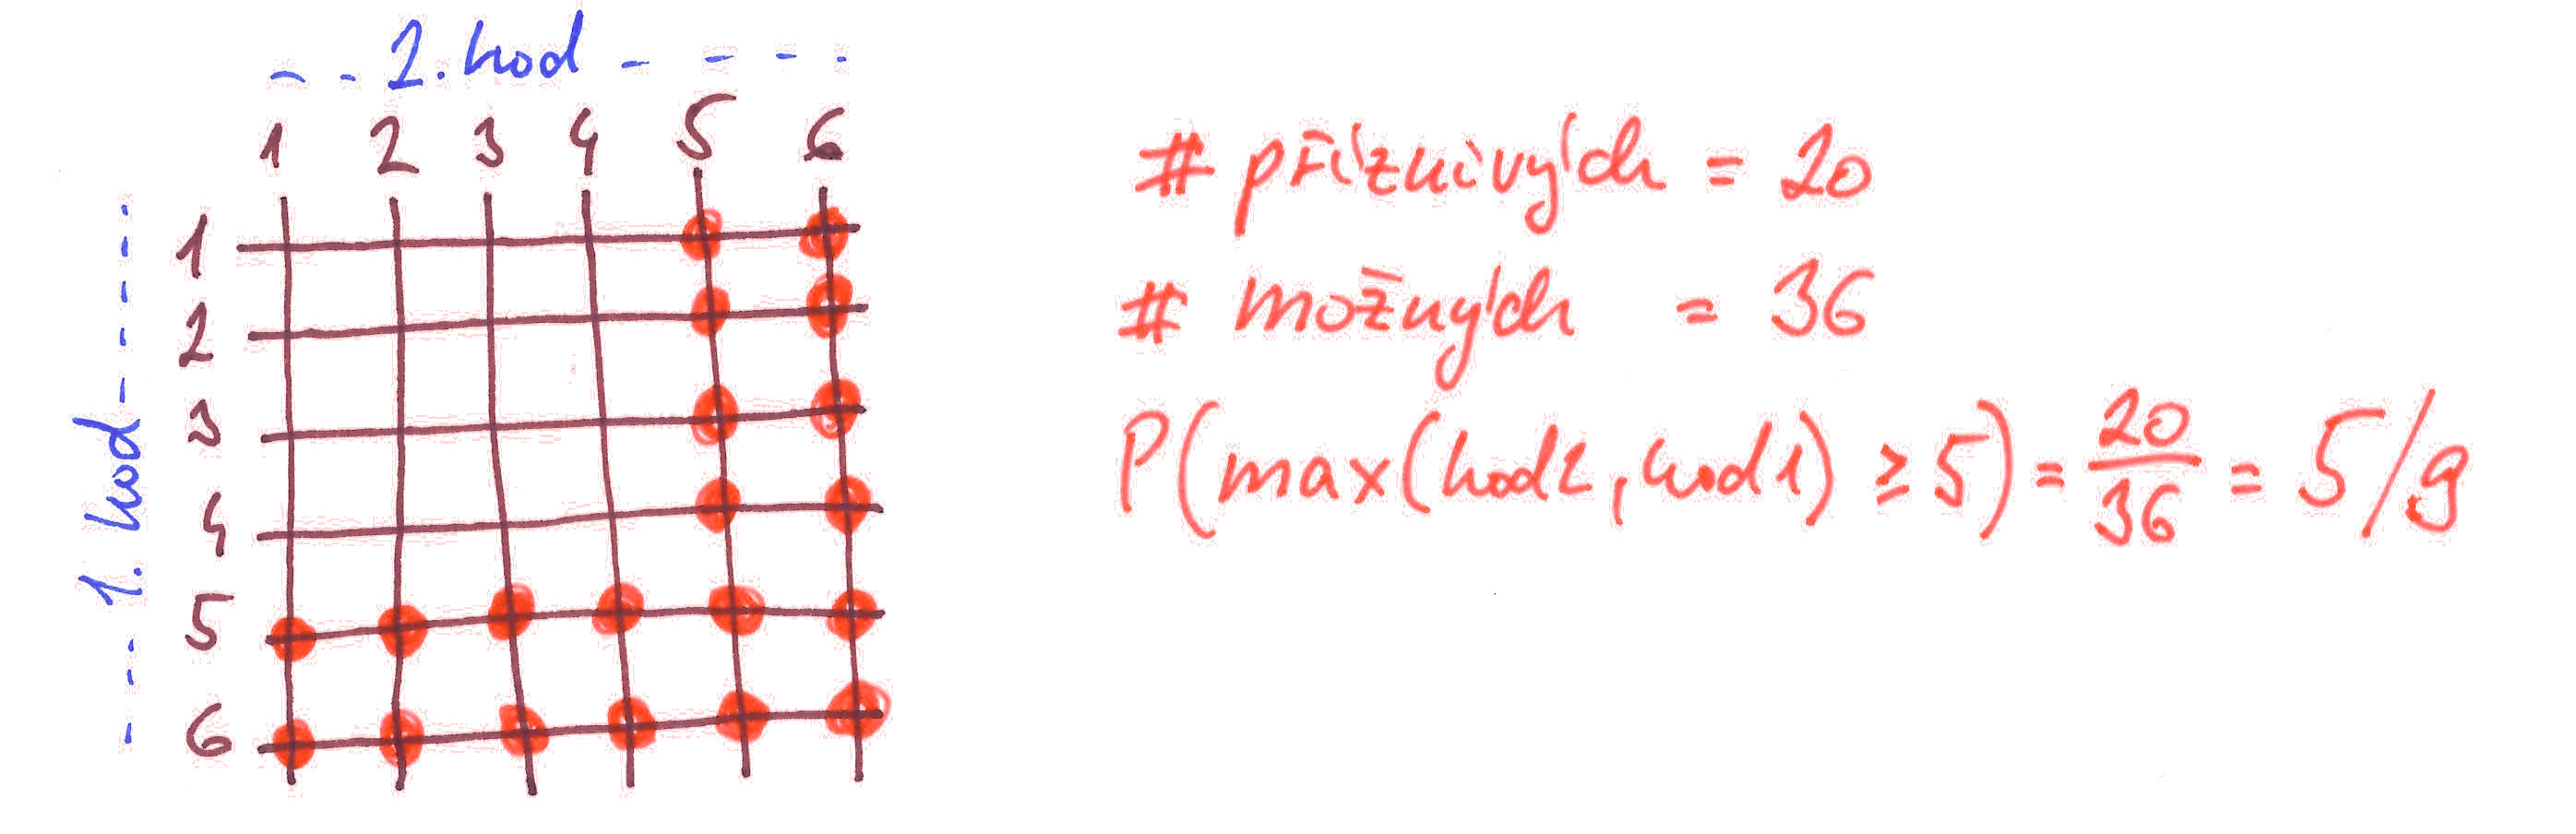 2. hod
1 2 3 4 5 6
1
2
3
4
5
6
1. hod
# příznivých = 20
# možných = 36
P(max(hod2, hod1) ≥ 5) = 20/36 = 5/9